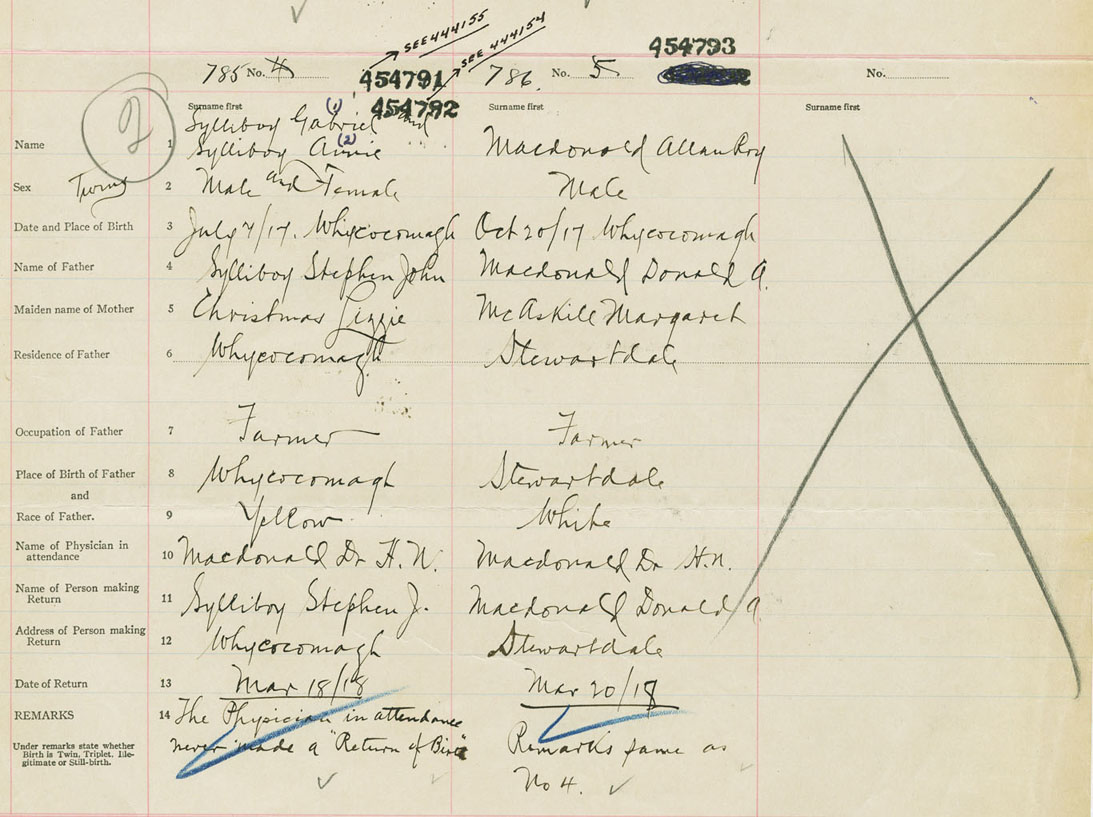 SEE 444155
SEE 444154
785 No. 4 454791 786. No. 5 454793 No.
454792
2
Surname first Surname first Surname first
Sylliboy Gabriel (1) and
Name 1 Sylliboy Annie (2) Macdonald Allan Roy
Sex Twins 2 Male and Female Male
Date and Place of Birth 3 July 7/17. Whycocomagh Oct 20/17 Whycocomagh
Name of Father 4 Sylliboy Stephen John Macdonald Donald A.
Maiden name of Mother 5 Christmas Lizzie McAskill Margaret
Residence of Father 6 Whycocomagh Stewartdale
Occupation of Father 7 Farmer Farmer
Place of Birth of Father 8 Whycocomagh Stewartdale
and
Race of Father. 9 Yellow White
Name of Physician in
attendance 10 Macdonald Dr H. N. Macdonald Dr H.N.
Name of Person making
Return 11 Sylliboy Stephen J. Macdonald Donald A
Address of Person making
Return 12 Whycocomagh Stewartdale
Date of Return 13 Mar 18/18 Mar 20/18
REMARKS 14 The Physician in attendance
never made a "Return of Birth" Remarks same as
No 4.
Under remarks state whether
Birth is Twin, Triplet, Ille-
gitimate or Still-birth.